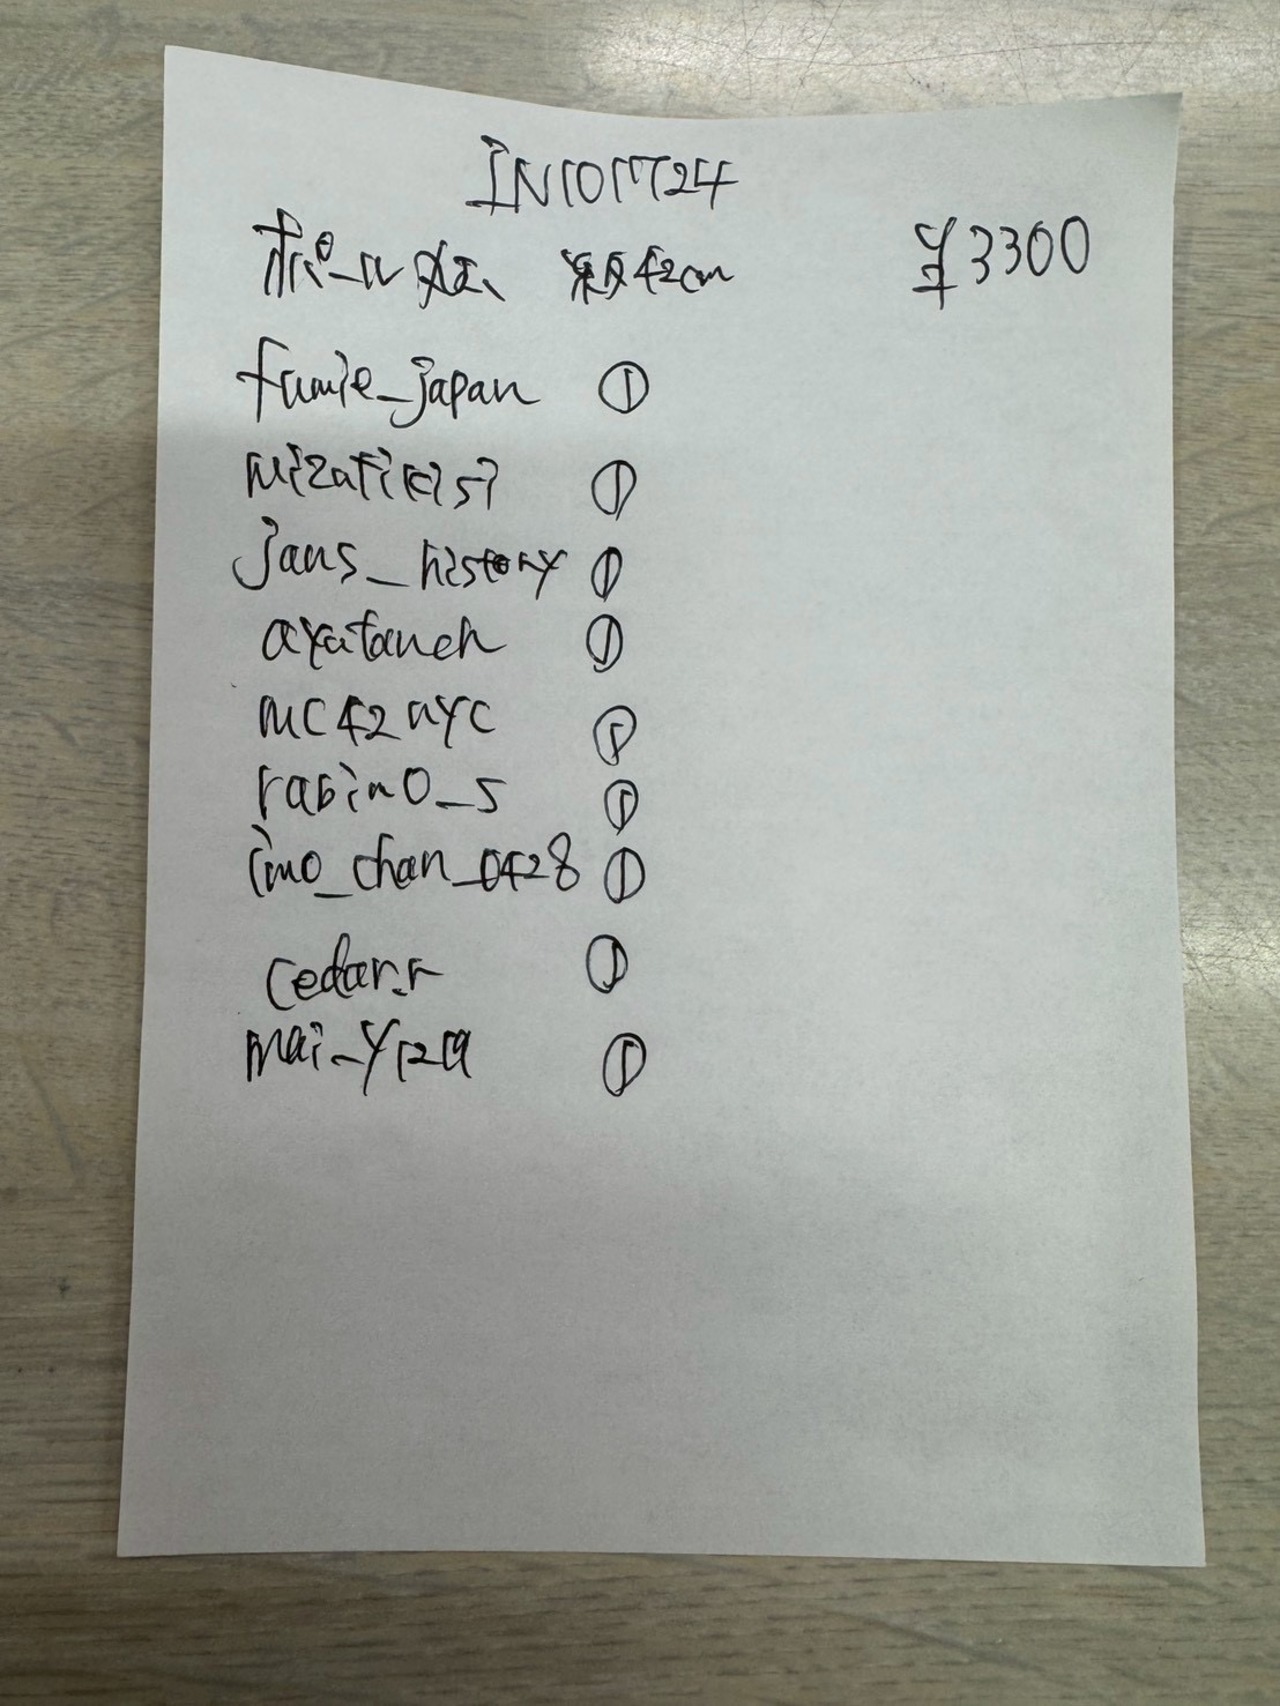 IN101724
ポール 緑42cm ¥3300
fumie_japan ①
mizutikisi ①
jans_history ①
ayataneh ①
mc42nyc ①
rabin0_s ①
imo_chan_0428 ①
cedar.r ①
mai_y1219 ①